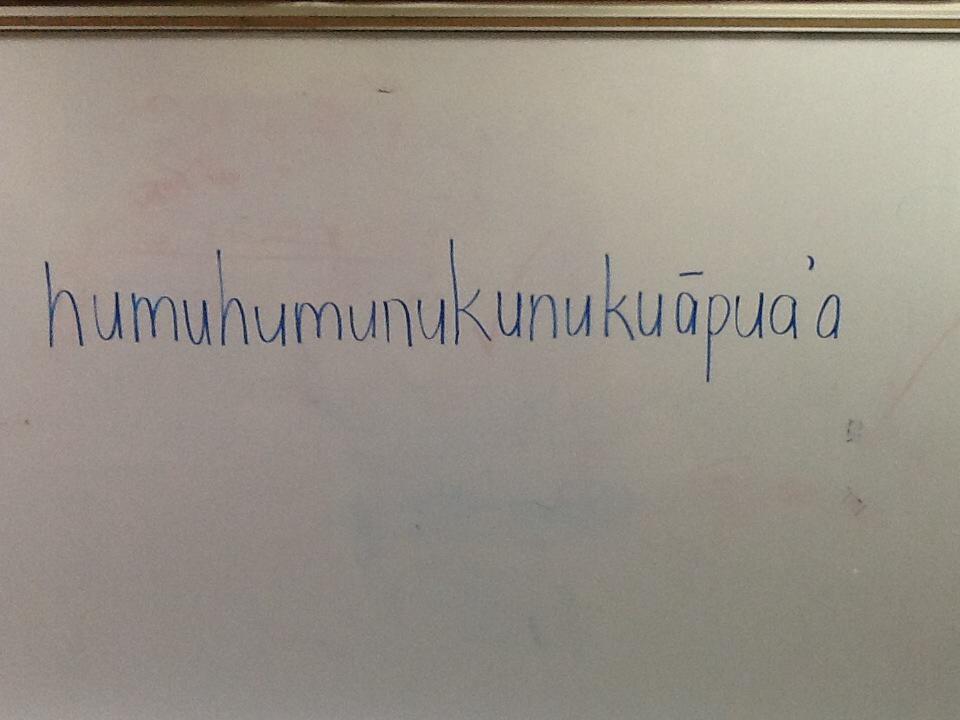 humuhumunukunukuāpua'a